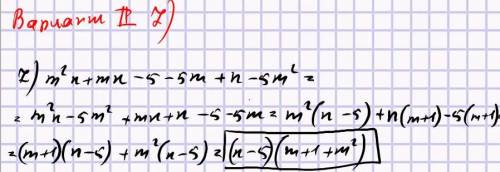 Вариант II 7)
7) m²n+mn-5-5m+n-5m²=
= m²n-5m²+mn+n-5-5m= m²(n-5)+n(m+1)-5(m+1)
=(m+1)(n-5)+m²(n-5)=(n-5)(m+1+m²)